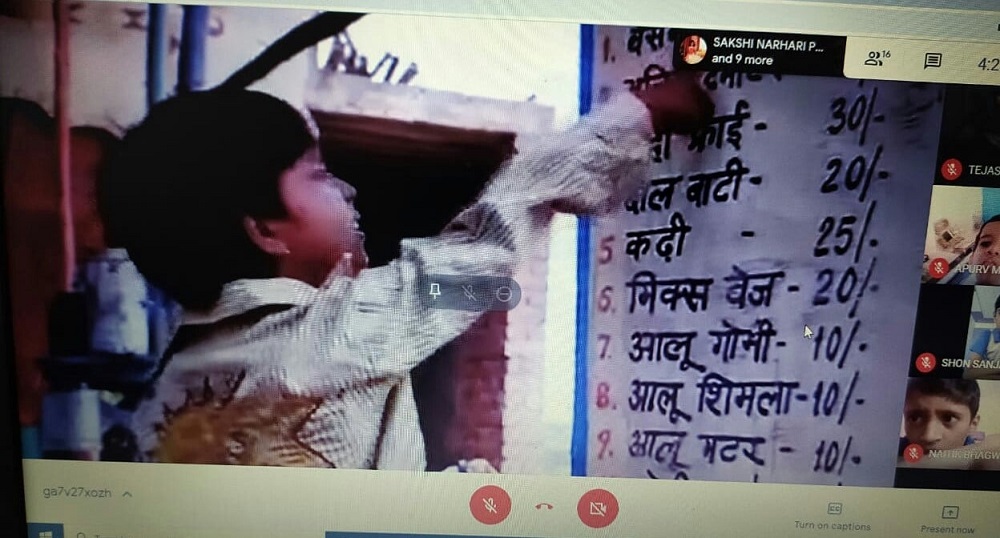 SAKSHI NARHARI P...
and 9 more
16
4:2
1.
फ्राई - 30/-
दाल बाटी - 20/-
5 कढ़ी - 25/-
6. मिक्स वेज - 20/-
7. आलू गोभी - 10/-
8. आलू शिमला - 10/-
9. आलू मटर - 10/-
TEJAS
APURV M
SHON SANJ
NAITIK BHAGW
ga7v27xozh
Turn on captions
Present now